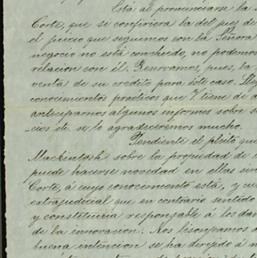 Está al pronunciarse la
Corte, que se confiriera la del juez de
el pleito que seguimos con la Señora
negocio no está concluido no podemos
relacion con él. Reservamos, pues, la
venta de su credito para este caso.
conocimientos practicos que V. tiene de
anticiparnos algunos informes sobre
cies de se lo agradeceremos mucho.
Pendiente el pleito que
Mackintosh sobre la propiedad de
puede hacerse novedad en ellas sin
Corte, á cuyo conocimiento está, y
extrajudicial que en contrario sentido
y constituiria responsable á los daños
de la innovacion. Nos lisonjeamos
buena intencion se ha dirigido á